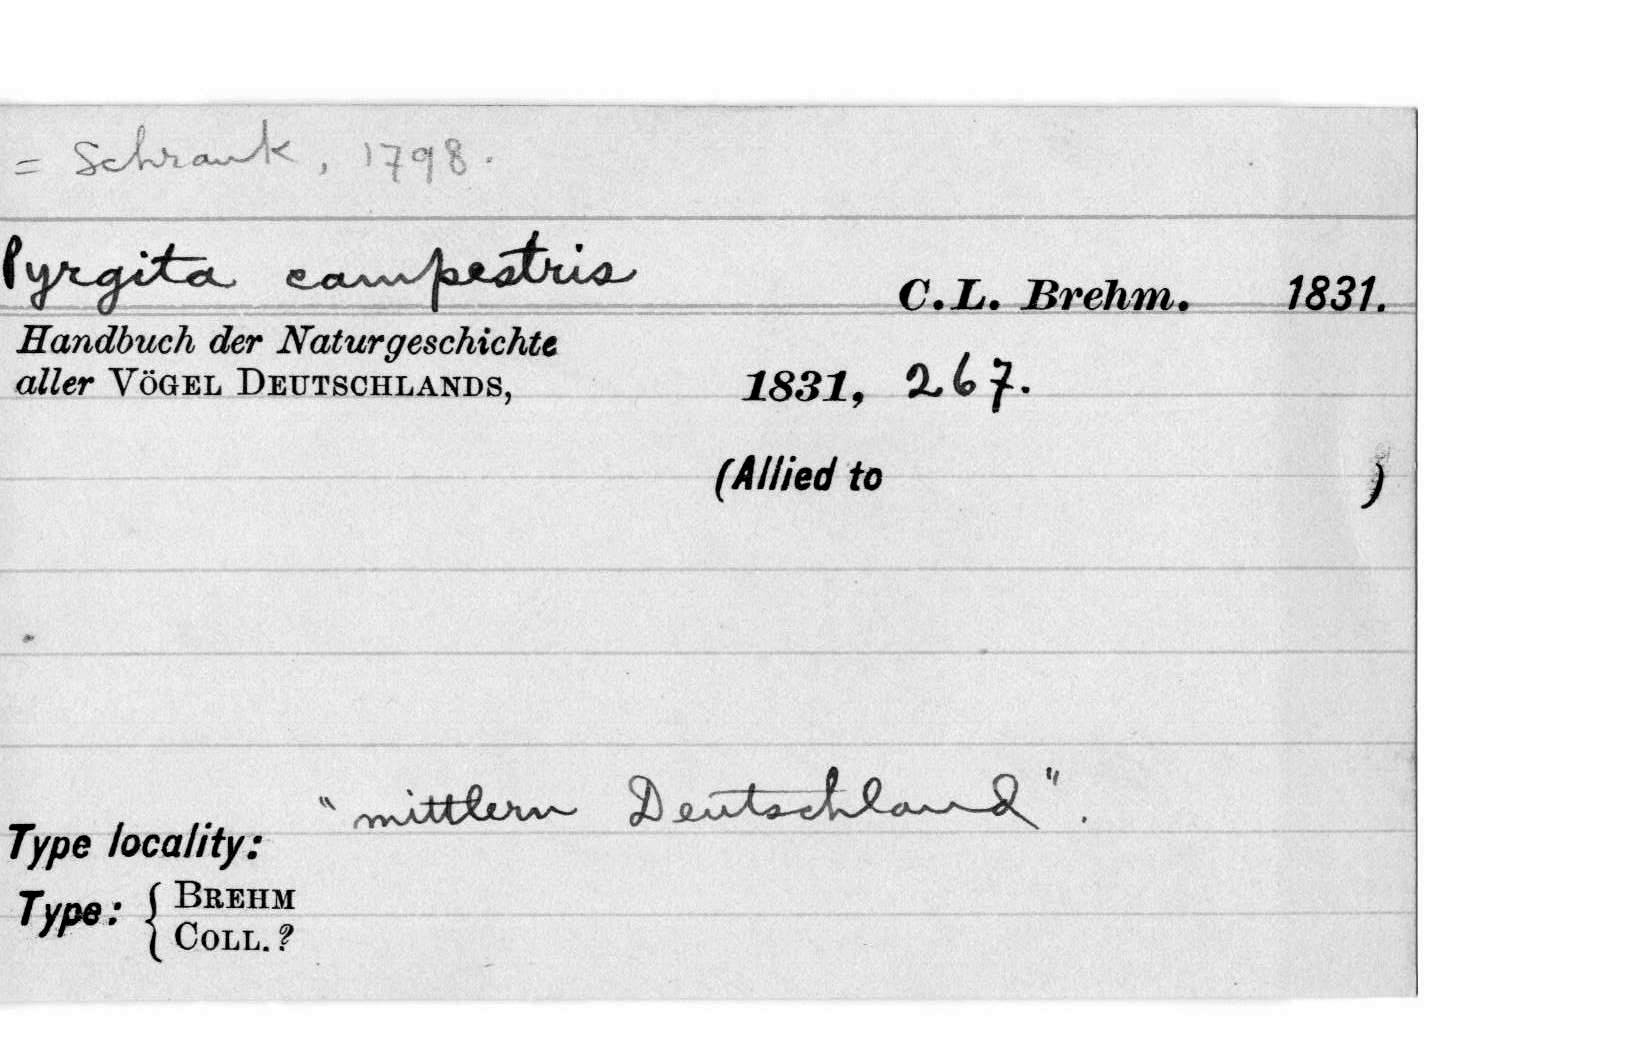 = Schrank, 1798.
Pyrgita campestris C.L. Brehm. 1831.
Handbuch der Naturgeschichte
aller VÖGEL DEUTSCHLANDS, 1831, 267.
(Allied to )
"mittlern Deutschland".
Type locality:
Type: { BREHM
COLL. ?